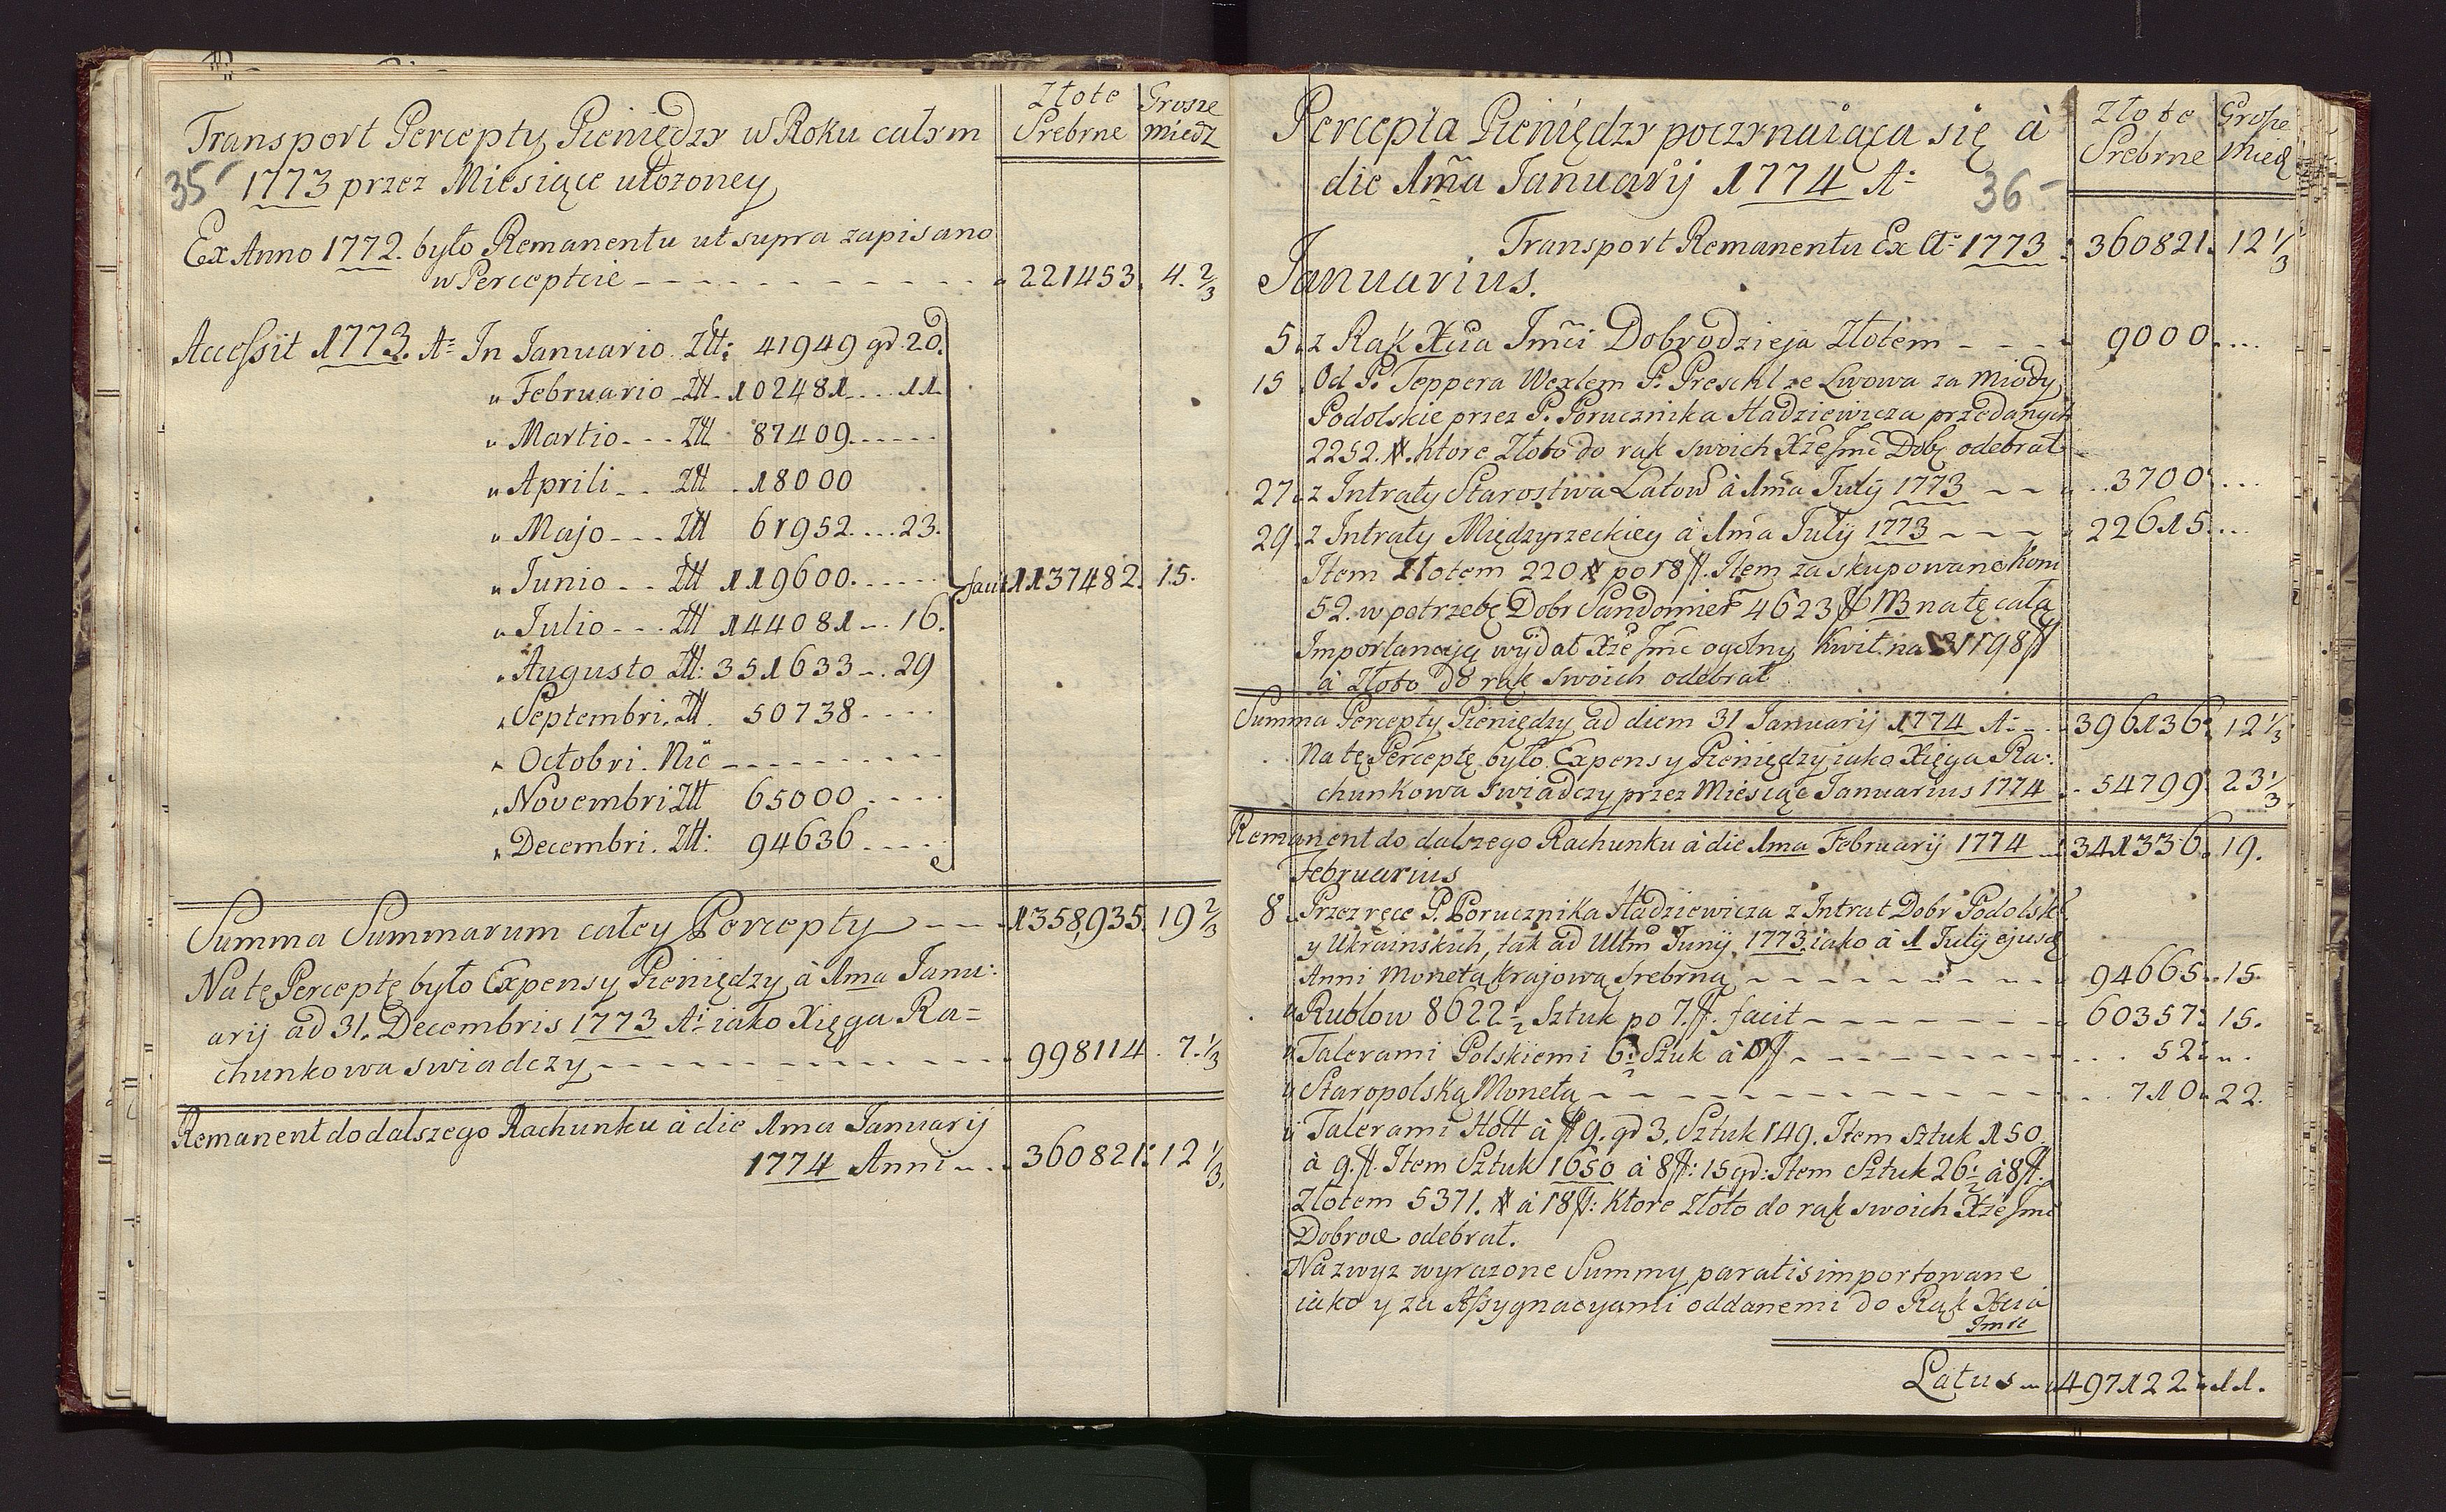 Złote Grosze
Srebrne miedz
Transport Percepty Pieniędzy w Roku całym
35
1773 przez Miesiące ułożoney
Ex Anno 1772. było Remanentu ut supra zapisano
w Percepcie - - - 221453. 4. 2/3
Accessit 1773. A: In Januario Złł: 41949 gr. 20.
" Februario Złł 102481 . . . 11
" Martio - - - Złł 87409 . . . .
" Aprili - - Złł 18000
" Majo - - - Złł 61952 . . . 23.
" Junio - - Złł 119600 . . . . facit 1137482. 15.
" Julio - - - Złł 144081 - - 16.
" Augusto Złł: 351633 - . 29
" Septembri. Złł. 50738 - - -
" Octobri. Nic - - - - -
" Novembri Złł 65000 - - -
" Decembri. Złł: 94636 - - - -
Summa Summarum całey Percepty - - - 1358,935. 19 2/3
Na tę Perceptę było Expensy Pieniędzy à 1ma Janu:
arij ad 31. Decembris 1773 A: iako Xięga Ra=
chunkowa swiadczy - - - - 998114. 7. 1/3
Remanent do dalszego Rachunku à die 1ma Januarij
1774 Anni - . 360821: 12 1/3.
Złote Grosze
Srebrne Mied
Percepta Pieniędzy poczynaiąca się à
die 1ma Januarij 1774 A:
36
Transport Remanentu Ex A: 1773 : 360821. 12 1/3
Januarius.
5. z Rąk Xcia Jmci Dobrodzieja Złotem - - - 9000. . . .
15. Od P. Teppera Wexlem P. Preschl ze Lwowa za Miody
Podolskie przez P. Porucznika Hadziewicza przedanych
2252. #. ktore Złoto do rąk swoich Xże Jmc Dob. odebrał -
27. z Intraty Starostwa Latow à 1ma Julij 1773 - - . 3700. . . .
29. z Intraty Międzyrzeckiey à 1ma Julij 1773 - - - - 22615. . . .
Item Złotem 220 # po 18 fl. Item za skupowane Kom
52. w potrzebę Dobr Sandomier 4623 fl NB na tę całą
Importancyą wydał Xże Jmc ogolny Kwit. na 31198 fl
à Złoto do rąk swoich odebrał
Summa Percepty Pieniędzy ad diem 31 Januarij 1774 A: - . 396136. 12 1/3
Na tę Perceptę było Expensy Pieniędzy iako Xięga Ra:
chunkowa swiadczy przez Miesiąc Januarius 1774 - . 54799. 23 1/3
Remanent do dalszego Rachunku à die 1ma Februarij 1774 - 341336. 19.
Februarius
8. Przez ręce P. Porucznika Hadziewicza z Intrat Dobr Podolsk
y Ukrainskich, tak ad Ultm Junij 1773 iako à 1 Julij ejusd
Anni Monetą krajową Srebrną - - - - - 94665. 15.
" Rublow 8622 1/2 Sztuk po 7. fl. facit - - - - - - 60357: 15.
" Talerami Polskiemi 6 1/2 Sztuk à 8 fl - - - - - - 52. " .
" Staropolską Monetą - - - - - - - 710. 22.
" Talerami Holl à fl 9. gr 3. Sztuk 149. Item Sztuk 150.
à 9. fl. Item Sztuk 1650 à 8 fl: 15 gr: Item Sztuk 26 1/2 à 8 fl.
Złotem 5371. # à 18 fl: ktore Złoto do rąk swoich Xże Jmc
Dobrod odebrał.
Na zwyz wyrazone Summy paratis importowane
iako y za Assygnacyami oddanemi do Rąk Xcia
Jmci
Latus - 497122. 11.